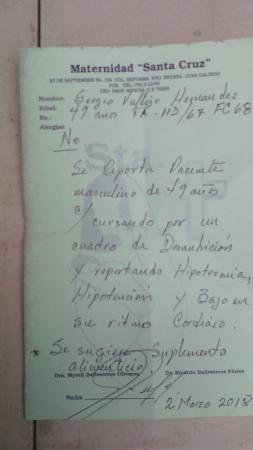 Maternidad "Santa Cruz"
27 DE SEPTIEMBRE No.
Nombre: Sergio Vallejo Hernandez
Edad: 49 año TA- 113/67 FC 68
Alergias:
No
Se Reporta Paciente
masculino de 49 año
c/ cursando por un
cuadro de Desnutrición
y reportando Hipotermia,
Hipotención y Bajo en
su ritmo Cardiaco.
* Se sugiere Suplemento
alimenticio
Dra. Myteli Ballesteros Olivares Dr. Ricardo Ballesteros Flores
Fecha: 2 Marzo 2018